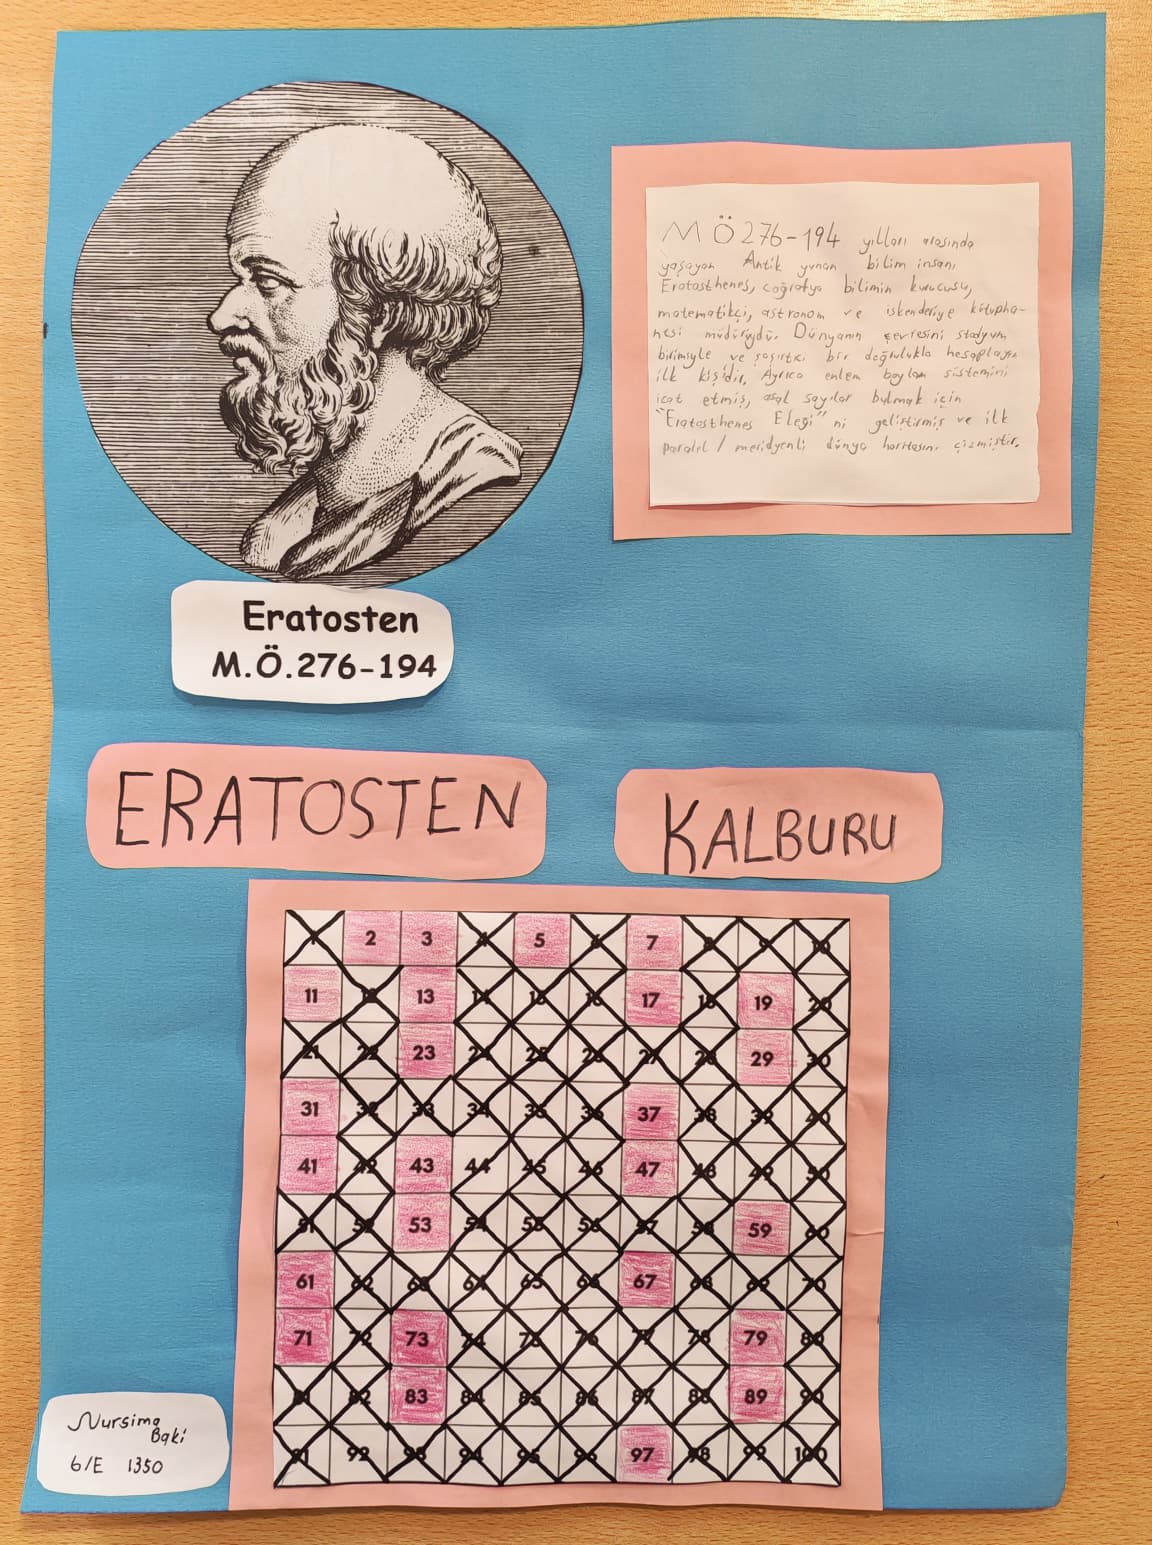 MÖ 276-194 yılları arasında
yaşayan Antik yunan bilim insanı
Eratosthenes, coğrafya bilimin kurucusu,
matematikçi, astronom ve iskenderiye kütüpha-
nesi müdürüydü. Dünyanın çevresini stadyum
birimiyle ve şaşırtıcı bir doğrulukla hesaplayan
ilk kişidir. Ayrıca enlem boylam sistemini
icat etmiş, asal sayılar bulmak için
"Eratosthenes Eleği" ni geliştirmiş ve ilk
paralel / meridyenli dünya haritasını çizmiştir.
Eratosten
M.Ö.276-194
ERATOSTEN KALBURU
1 2 3 4 5 6 7 8 9 10
11 12 13 14 15 16 17 18 19 20
21 22 23 24 25 26 27 28 29 30
31 32 33 34 35 36 37 38 39 40
41 42 43 44 45 46 47 48 49 50
51 52 53 54 55 56 57 58 59 60
61 62 63 64 65 66 67 68 69 70
71 72 73 74 75 76 77 78 79 80
81 82 83 84 85 86 87 88 89 90
91 92 93 94 95 96 97 98 99 100
Nursima
Baki
6/E 1350